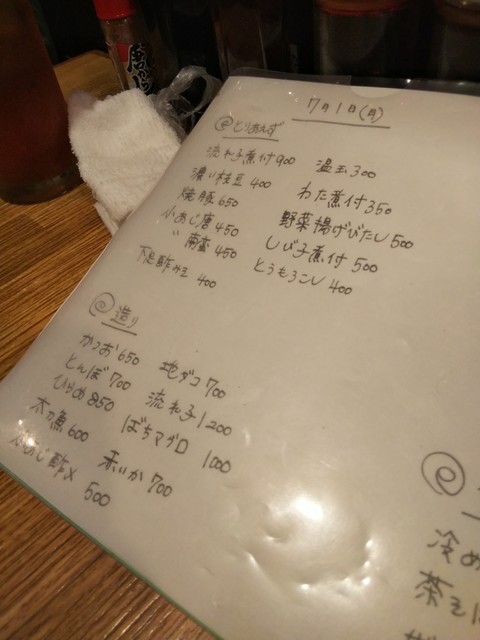 7月1日(月)
とりあえず
流れ子煮付 900
濃い枝豆 400
焼豚 650
小あじ唐 450
〃 南蛮 450
下足酢みそ 400
温玉 300
わた煮付 350
野菜揚げびたし 500
しび子煮付 500
とうもろこし 400
造り
かつお 650
とんぼ 700
ひらめ 850
太刀魚 600
酢〆 500
地ダコ 700
流れ子 1200
ばちマグロ 1000
赤いか 700
冷め
茶そば